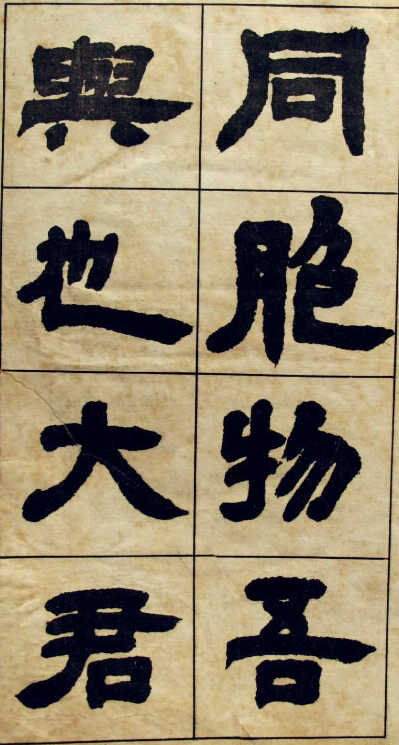 同胞物吾
與也大君